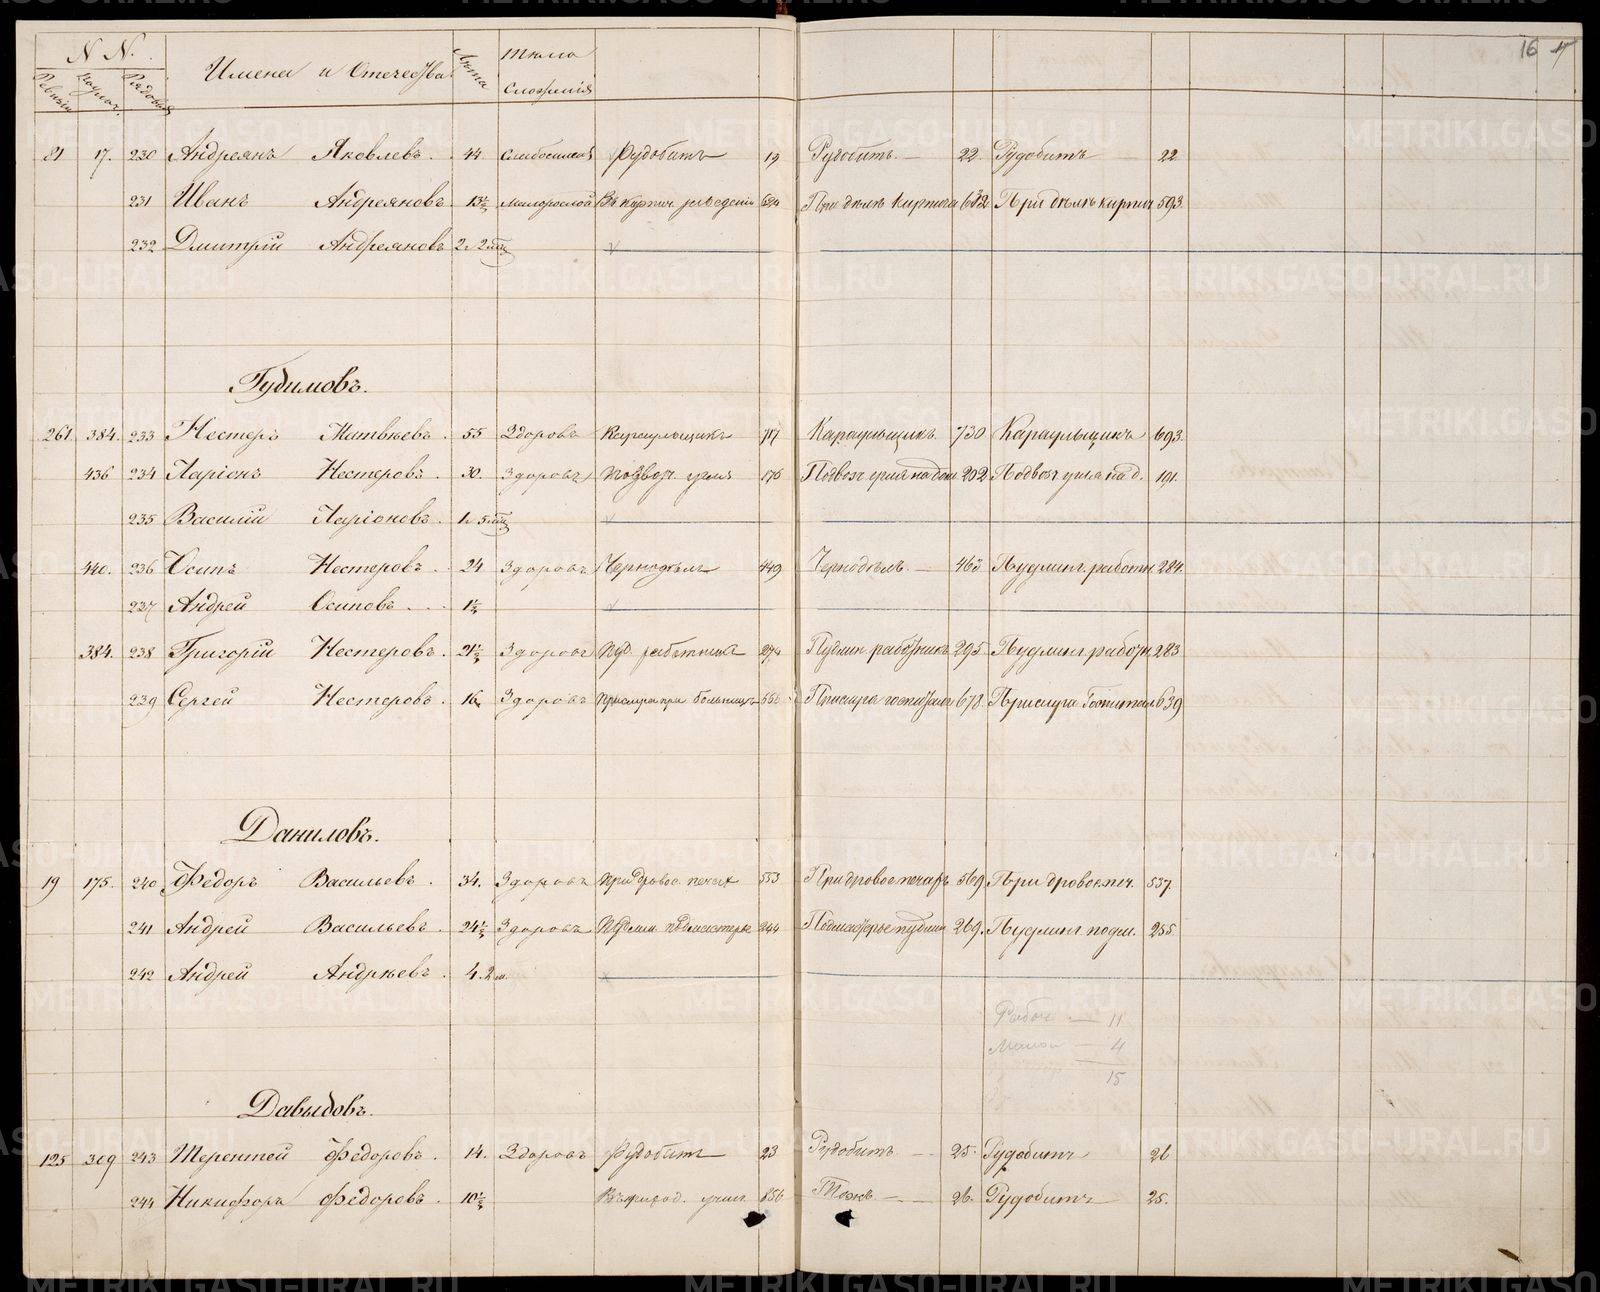 N N. Имена и Отчества Лѣта Тѣло 16
Ревизіи Рядовыя сложенія
81 17. 230 Андреянъ Яковлевъ. 44 Слабосильный Рудобитъ 19 Рудобитъ. — 22. Рудобитъ 22
231 Иванъ Андреяновъ. 13½ Малорослый Въ кирпич. заведеніи При дѣлѣ кирпича 632 При дѣлѣ кирпич 593
232 Дмитрій Андреяновъ 2. 2 мѣс
Гудимовъ.
261. 384. 233 Нестеръ Матвѣевъ. 55 Здоровъ Караульщикъ 717 Караульщикъ. 730 Караульщикъ 693.
436 234 Ларіонъ Нестеровъ. 30. Здоровъ Подвоз. угля 176 Подвозч угля на дом 202 Подвозч угля на д. 191.
235 Василій Ларіоновъ. 1. 5 мѣс
440. 236 Осипъ Нестеровъ. 24 Здоровъ Чернодѣлъ 449 Чернодѣлъ. — 463 Пудлинг. работн. 284.
237 Андрей Осиповъ... 1½
384. 238 Григорій Нестеровъ. 21½ Здоровъ Пуд. работникъ 274 Пудлин. работникъ 295. Пудлинг. работн. 283
239 Сергей Нестеровъ. 16. Здоровъ Прислуга при больницѣ Прислуга госпиталя 678. Прислуга Госпитал 639
Даниловъ.
19 175. 240 Федоръ Васильевъ. 34. Здоровъ При дровос. печах 553 При дровос печахъ 569. При дровос. печ. 557.
241 Андрей Васильевъ. 24½ Здоровъ Пудлин. подмастерье 244 Подмастерье пудлин 269. Пудлинг. подм. 255.
242 Андрей Андрѣевъ. 4. 2 м.
Рабоч — 11
Малол — 4
15
Давыдовъ.
125 309 243 Терентей Федоровъ. 14. Здоровъ Рудобитъ 23 Рудобитъ — 25. Рудобитъ 26
244 Никифоръ Федоровъ. 10½ Въ приход. учил. 856 Тожъ. — 26. Рудобитъ 25.
METRIKI.GASO-URAL.RU